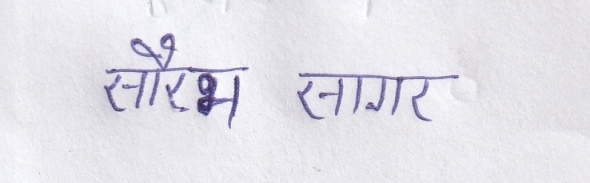 सौरभ सागर